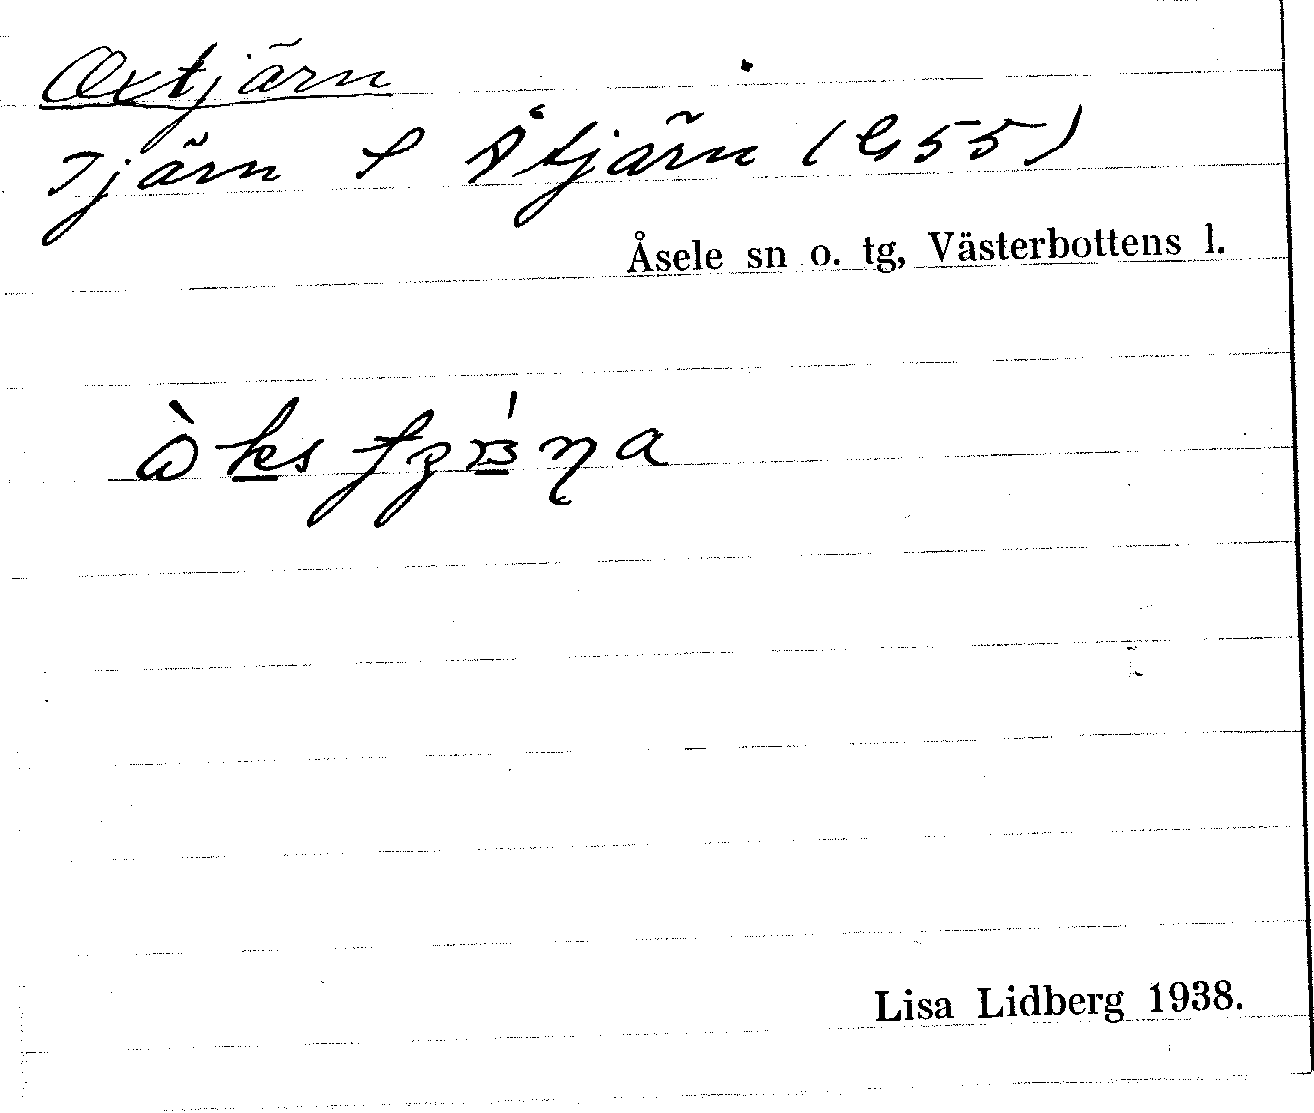 Oxtjärn
Tjärn S Åtjärn (G55)
Åsele sn o. tg, Västerbottens l.
Lisa Lidberg 1938.